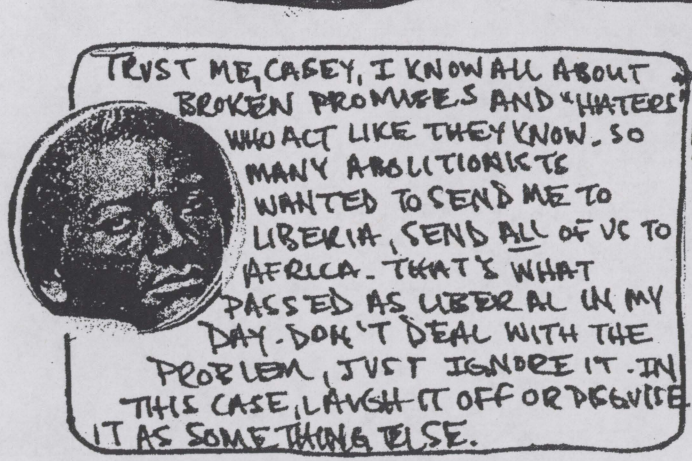 TRUST ME, CASEY, I KNOW ALL ABOUT
BROKEN PROMISES AND "HATERS"
WHO ACT LIKE THEY KNOW. SO
MANY ABOLITIONISTS
WANTED TO SEND ME TO
LIBERIA, SEND ALL OF US TO
AFRICA. THAT'S WHAT
PASSED AS LIBERAL IN MY
DAY. DON'T DEAL WITH THE
PROBLEM, JUST IGNORE IT. IN
THIS CASE, LAUGH IT OFF OR DISGUISE
IT AS SOMETHING ELSE.